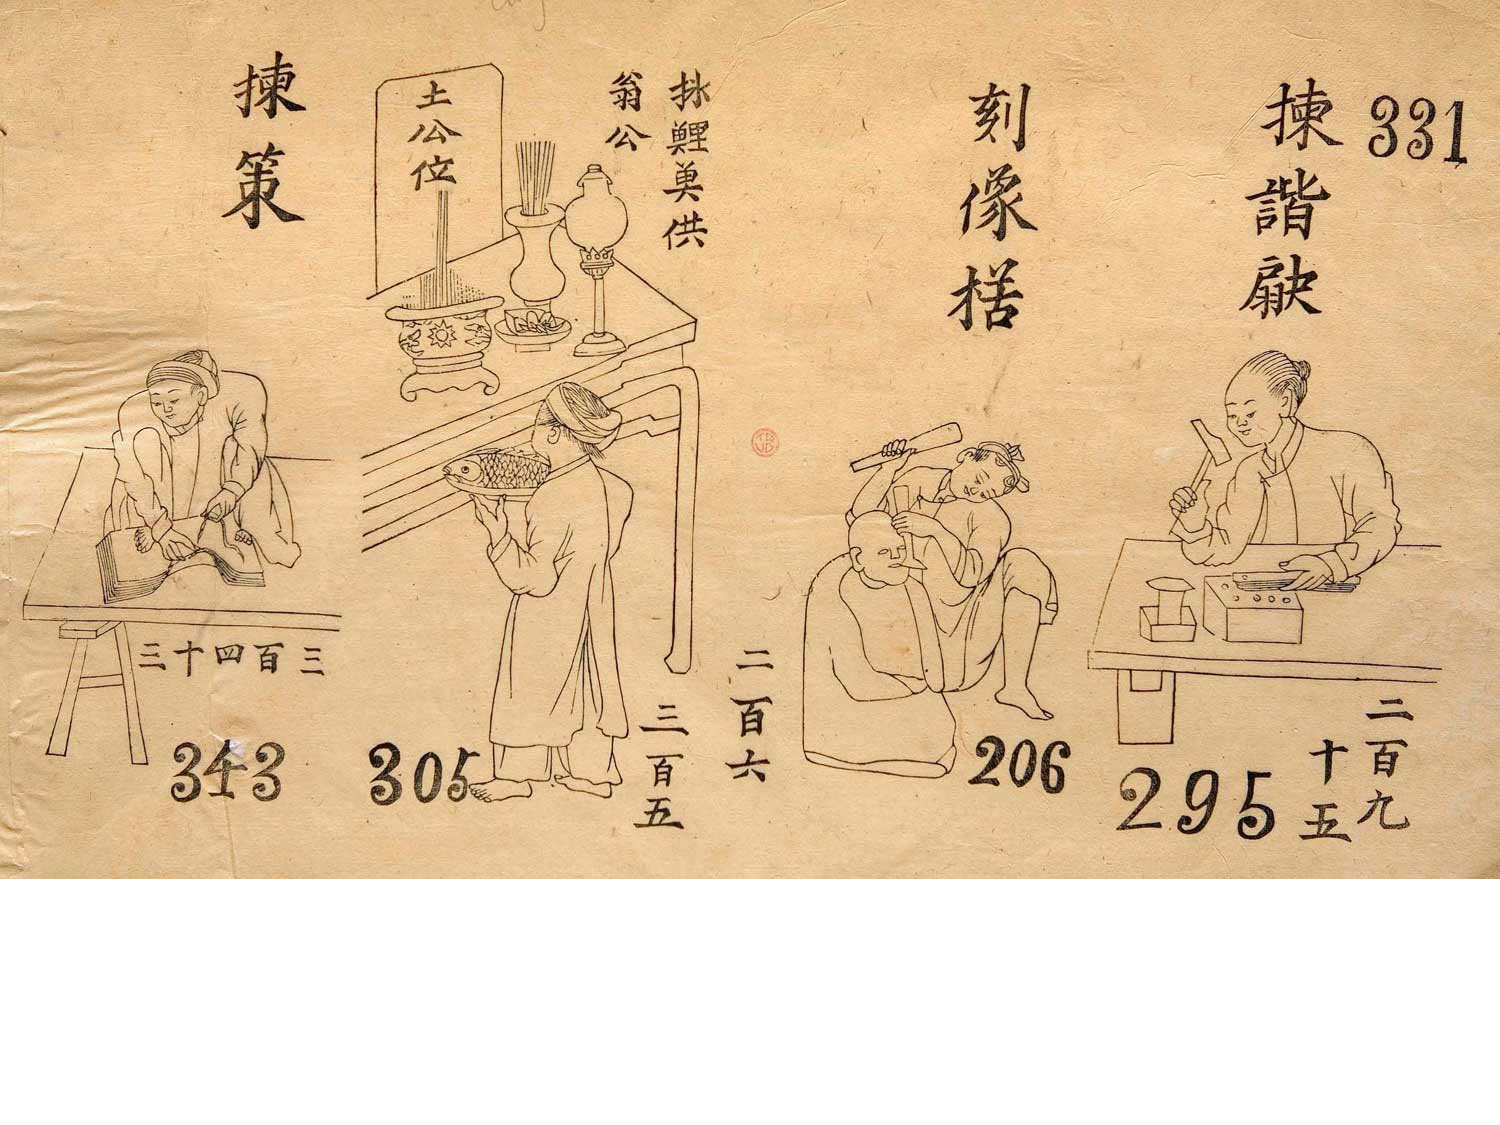 331
揀諧
二百九
十五
295
刻像楛
二百六
206
鯉奠供
翁公
土公位
三百五
305
揀策
三百四十三
343